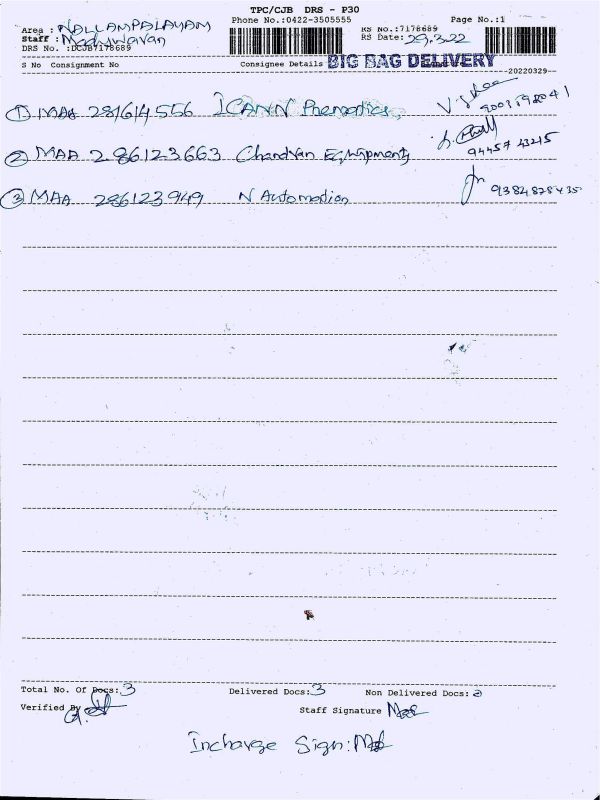 TPC/CJB DRS - P30
Phone No.:0422-3505555 Page No.:1
Area : NALLAMPALAYAM RS No.:7178689
Staff : RS Date: 29.3.22
DRS No. :DCJB7178689
S No Consignment No Consignee Details BIG BAG DELIVERY
20220329
① MAA 281614556 ICANN Pnematics,
② MAA 286123663 Chandran Equipments 94457 43215
③ MAA 286123949 N Automation 9384828435
Total No. Of Docs: 3 Delivered Docs: 3 Non Delivered Docs:
Verified By Staff Signature
Incharge Sign: